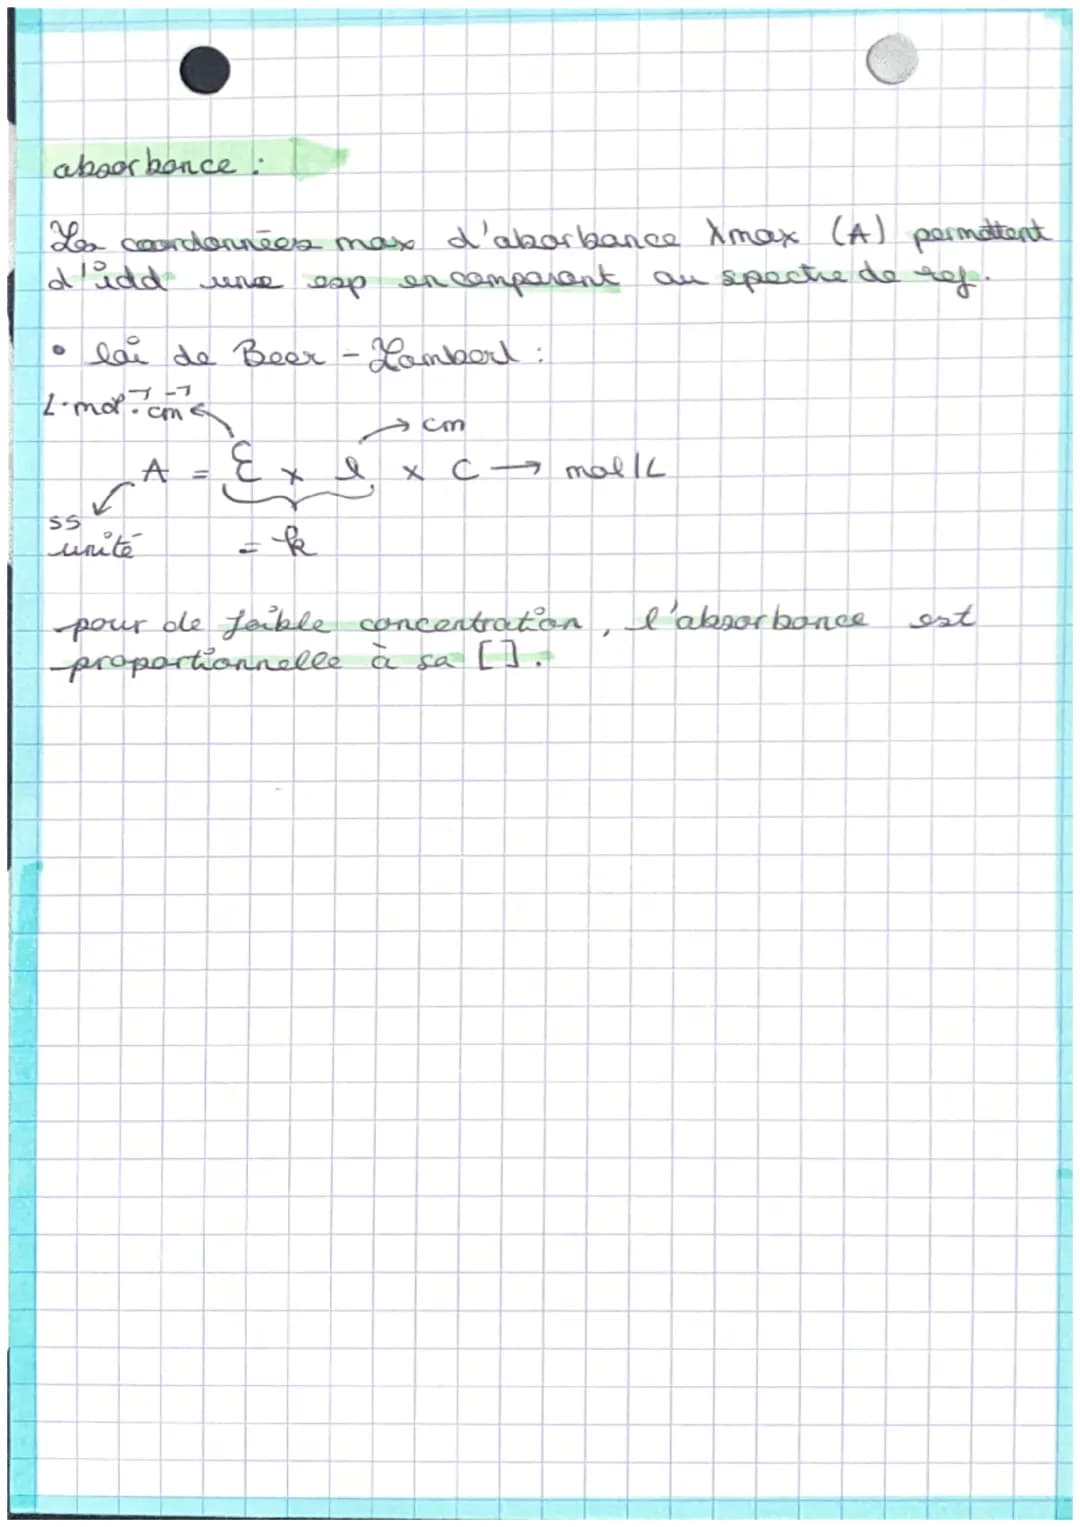 absorbance :
Les coordonnées max d'absorbance λmax (A) permettent
d'idd une esp en comparant au spectre de ref.
• loi de Beer - Lambert :
L·mol⁻¹·cm⁻¹
→ cm
A = ε × l × C → mol/L
ss
unité
= k
pour de faible concentration, l'absorbance est
proportionnelle à sa [].